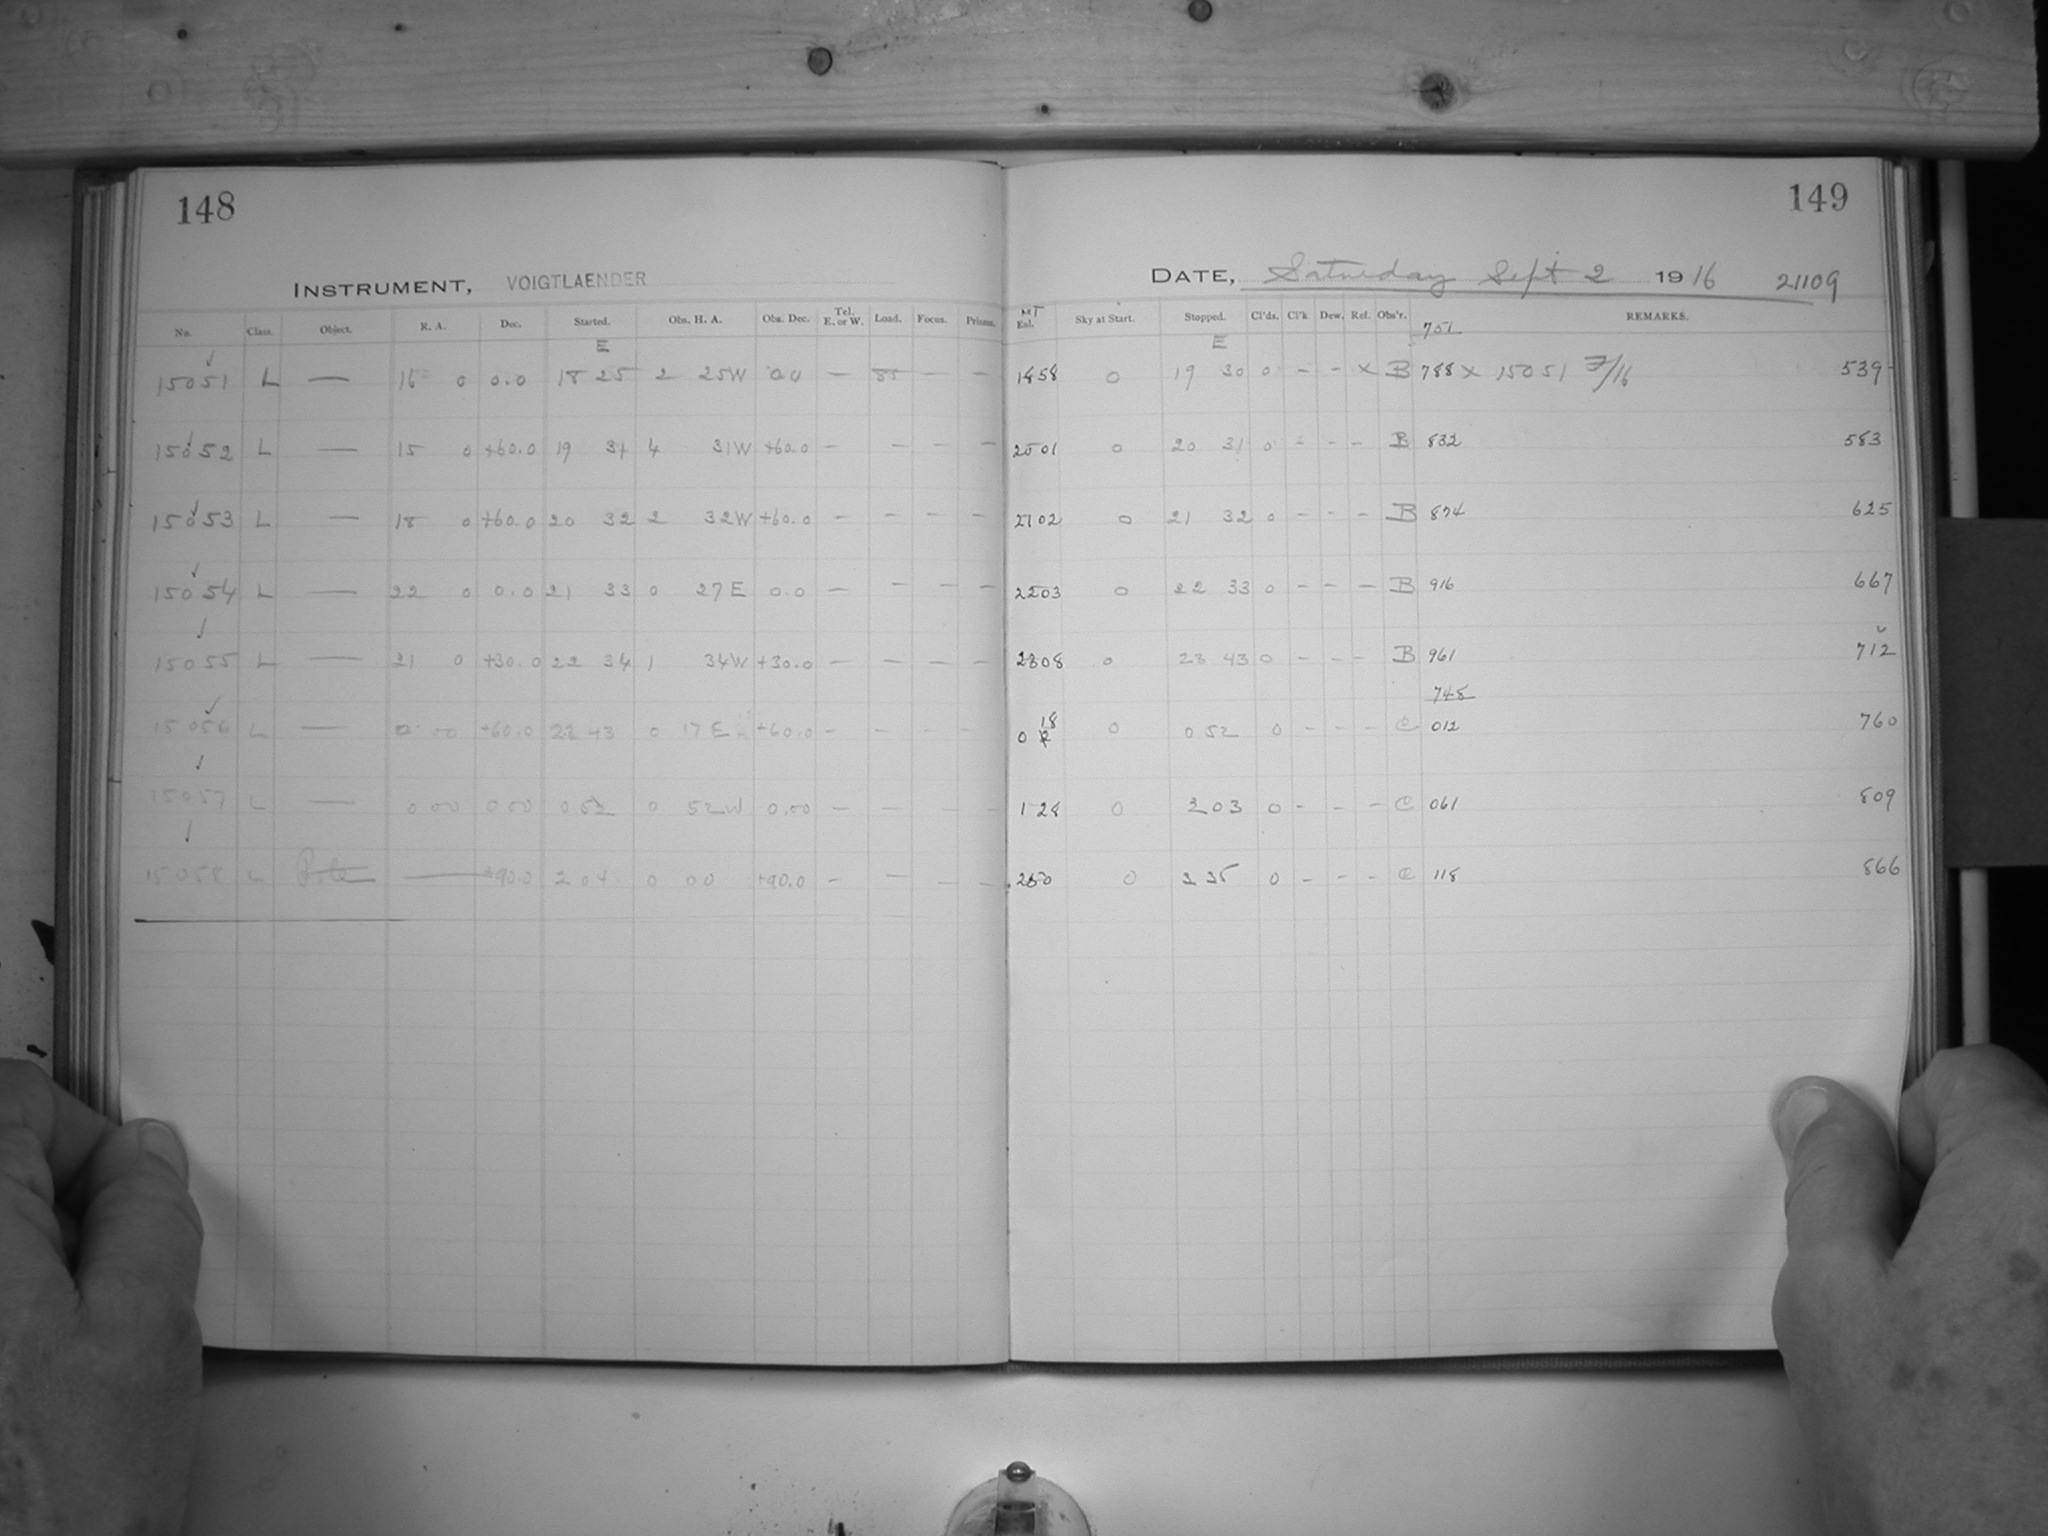 148
149
INSTRUMENT, VOIGTLAENDER
DATE, Saturday Sept 2 1916 21109
No. Class. Object. R. A. Dec. Started. Obs. H. A. Obs. Dec. Tel. E. or W. Load. Focus. Prisms. MT Eal. Sky at Start. Stopped. Cl'ds. Cl'k Dew. Ref. Obs'r. REMARKS.
E E 751
15051 L — 16 0 0.0 18 25 2 25W 0.0 — 85 — — 1858 0 19 30 0 - - x B 788 x 15051 7/16 539
15052 L — 15 0 +60.0 19 31 4 31W +60.0 — — — — 2001 0 20 31 0 - - - B 832 583
15053 L — 18 0 +60.0 20 32 2 32W +60.0 — — — — 2102 0 21 32 0 - - - B 874 625
15054 L — 22 0 0.0 21 33 0 27E 0.0 — — — — 2203 0 22 33 0 - - - B 916 667
15055 L — 21 0 +30.0 22 34 1 34W +30.0 — — — — 2308 0 23 43 0 - - - B 961 712
745
15056 L — 0 00 +60.0 23 43 0 17E +60.0 - - - - 0 18 0 0 52 0 - - - C 012 760
15057 L — 0.00 0 00 0 52 0 52W 0.00 — — — — 1 28 0 2 03 0 - - - C 061 809
15058 L Pole — +90.0 2 04 0 00 +90.0 - — - - 250 0 3 35 0 - - - C 118 866